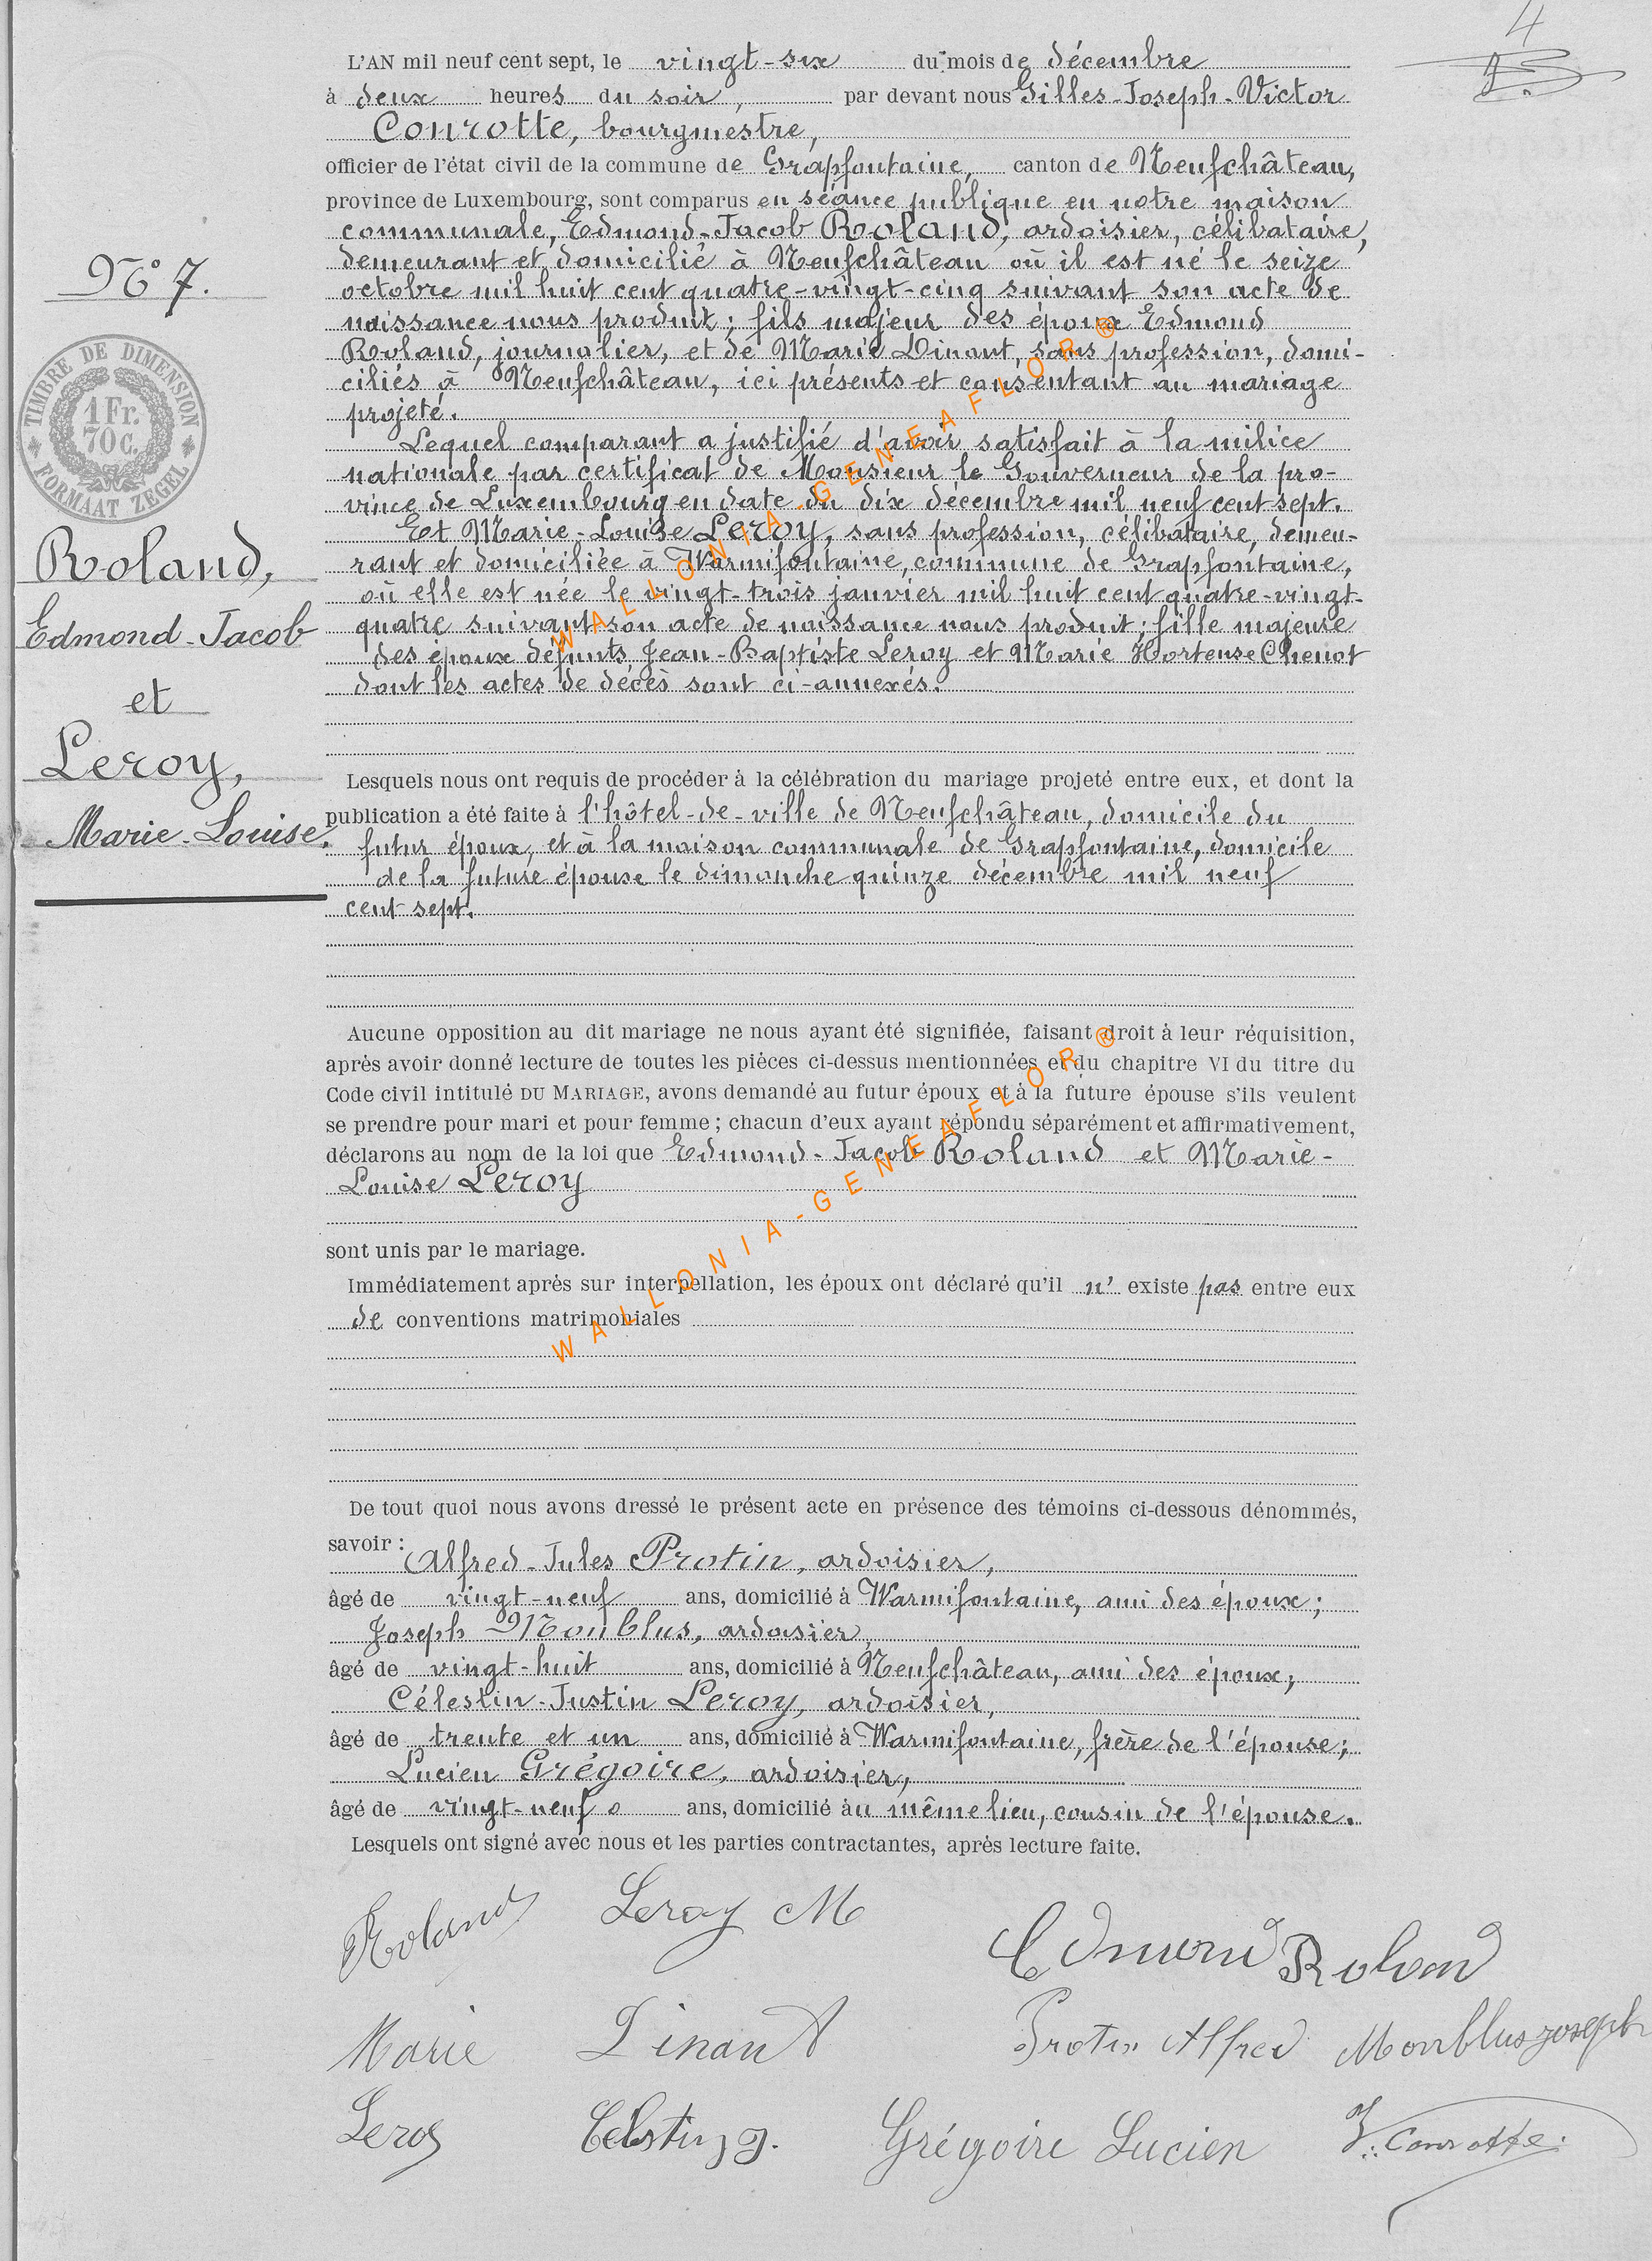 4
L'AN mil neuf cent sept, le vingt-six du mois de décembre
à deux heures du soir, par devant nous Gilles-Joseph-Victor
Conrotte, bourgmestre,
officier de l'état civil de la commune de Grapfontaine, canton de Neufchâteau,
province de Luxembourg, sont comparus en séance publique en notre maison
communale, Edmond-Jacob Roland, ardoisier, célibataire,
demeurant et domicilié à Neufchâteau où il est né le seize
octobre mil huit cent quatre-vingt-cinq suivant son acte de
naissance nous produit; fils majeur des époux Edmond
Roland, journalier, et de Marie Dinant, sans profession, domi-
ciliés à Neufchâteau, ici présents et consentant au mariage
projeté.
Lequel comparant a justifié d'avoir satisfait à la milice
nationale par certificat de Monsieur le Gouverneur de la pro-
vince de Luxembourg en date du dix décembre mil neuf cent sept.
Et Marie-Louise Leroy, sans profession, célibataire, demeu-
rant et domiciliée à Warmifontaine, commune de Grapfontaine,
où elle est née le vingt-trois janvier mil huit cent quatre-vingt-
quatre suivant son acte de naissance nous produit; fille majeure
des époux défunts Jean-Baptiste Leroy et Marie Hortense Chenot
dont les actes de décès sont ci-annexés.
N° 7.
TIMBRE DE DIMENSION
1 Fr.
70 C.
FORMAAT ZEGEL
Roland,
Edmond-Jacob
et
Leroy,
Marie-Louise.
Lesquels nous ont requis de procéder à la célébration du mariage projeté entre eux, et dont la
publication a été faite à l'hôtel-de-ville de Neufchâteau, domicile du
futur époux, et à la maison communale de Grapfontaine, domicile
de la future épouse le dimanche quinze décembre mil neuf
cent sept.
Aucune opposition au dit mariage ne nous ayant été signifiée, faisant droit à leur réquisition,
après avoir donné lecture de toutes les pièces ci-dessus mentionnées et du chapitre VI du titre du
Code civil intitulé DU MARIAGE, avons demandé au futur époux et à la future épouse s'ils veulent
se prendre pour mari et pour femme ; chacun d'eux ayant répondu séparément et affirmativement,
déclarons au nom de la loi que Edmond-Jacob Roland et Marie-
Louise Leroy
sont unis par le mariage.
Immédiatement après sur interpellation, les époux ont déclaré qu'il n' existe pas entre eux
de conventions matrimoniales
De tout quoi nous avons dressé le présent acte en présence des témoins ci-dessous dénommés,
savoir :
Alfred-Jules Protin, ardoisier,
âgé de vingt-neuf ans, domicilié à Warmifontaine, ami des époux;
Joseph Monblus, ardoisier,
âgé de vingt-huit ans, domicilié à Neufchâteau, ami des époux;
Célestin-Justin Leroy, ardoisier,
âgé de trente et un ans, domicilié à Warmifontaine, frère de l'épouse;
Lucien Grégoire, ardoisier,
âgé de vingt-neuf ans, domicilié au même lieu, cousin de l'épouse.
Lesquels ont signé avec nous et les parties contractantes, après lecture faite.
Roland Leroy M
Edmond Roland
Marie Dinant Protin Alfred Monblus Joseph
Leroy Célestin J. Grégoire Lucien V. Conrotte.
WALLONIA-GENEAFLOR®
WALLONIA-GENEAFLOR®